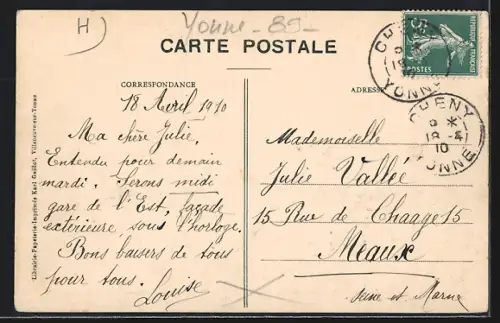 H)
Yonne - 89 -
CARTE POSTALE
CORRESPONDANCE
18 Avril 1910
Ma chère Julie,
Entendu pour demain
mardi. Serons midi
gare de l'Est, façade
extérieure sous l'horloge.
Bons baisers de tous
pour tous.
Louise
Librairie-Papeterie-Imprimerie Karl Guillot, Villeneuve-sur-Yonne
ADRESSE
Mademoiselle
Julie Vallée
15 Rue de Chaage 15
Meaux
Seine et Marne
REPUBLIQUE FRANÇAISE
POSTES
CHENY
YONNE
CHENY
18 - 4
10
YONNE